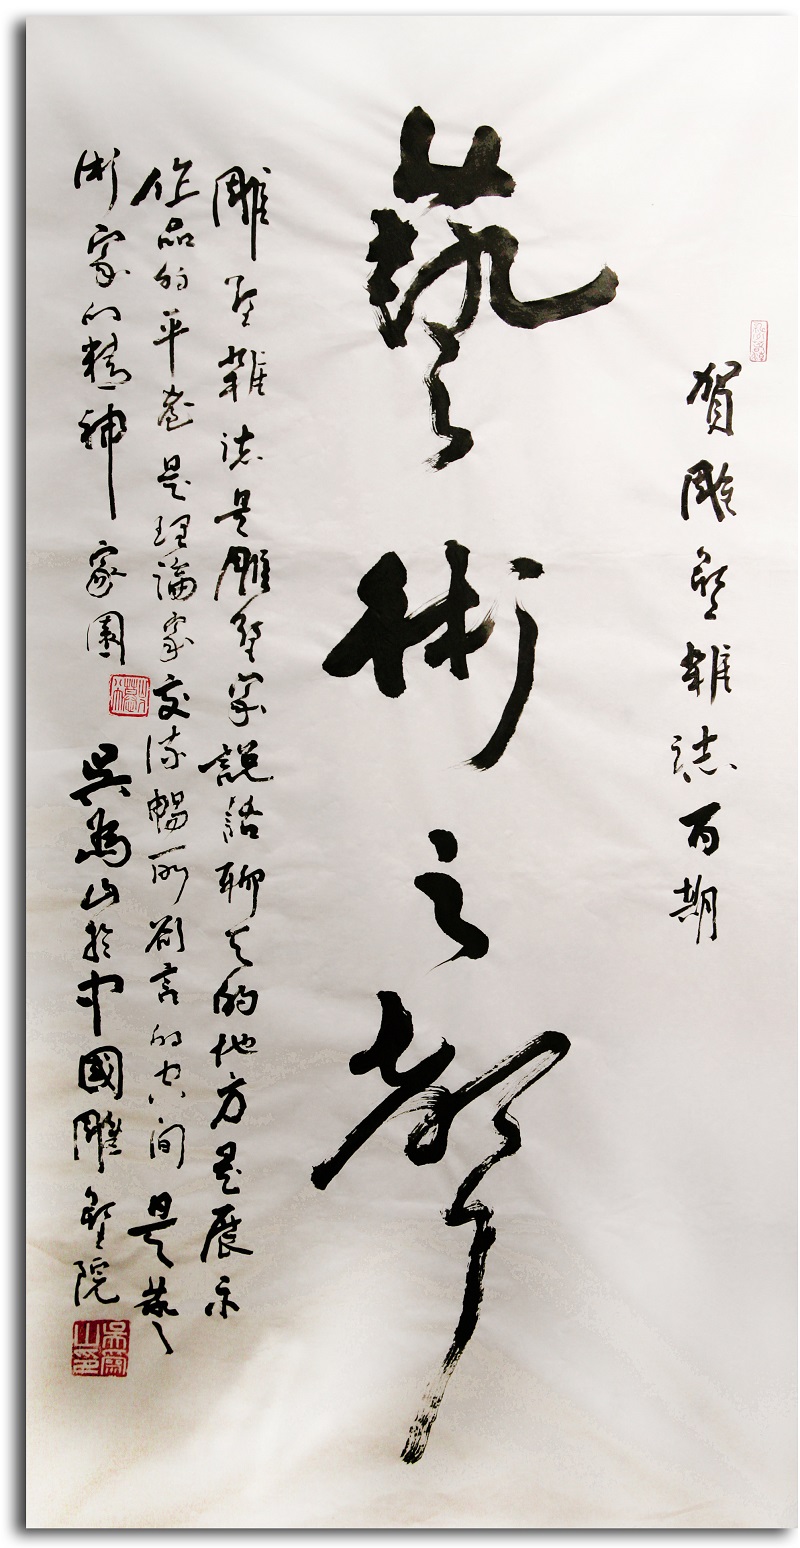 賀雕塑雜誌百期
藝術之都
雕塑雜誌是雕塑家說話聊天的地方是展示
作品的平臺是理論家交流暢所欲言的空間是藝
術家的精神家園 吳為山於中國雕塑院
吳為山印